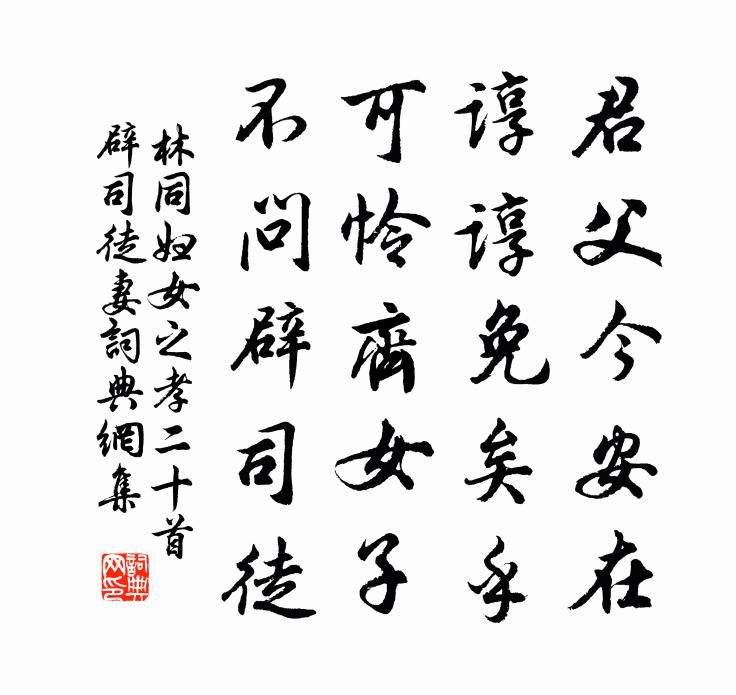 君父今安在
諄諄免矣乎
可憐齊女子
不問辟司徒
林同妇女之孝二十首
辟司徒妻詞典網集
詞典网印